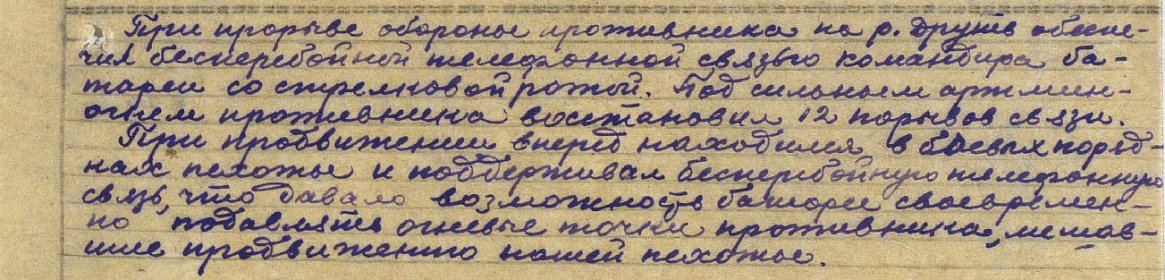 При прорыве обороны противника на р. Друть обеспе-
чил бесперебойной телефонной связью командира ба-
тареи со стрелковой ротой. Под сильным артмин-
огнем противника восстановил 12 порывов связи.
При продвижении вперед находился в боевых поряд-
ках пехоты и поддерживал бесперебойную телефонную
связь, что давало возможность батарее своевремен-
но подавлять огневые точки противника, мешав-
шие продвижению нашей пехоты.